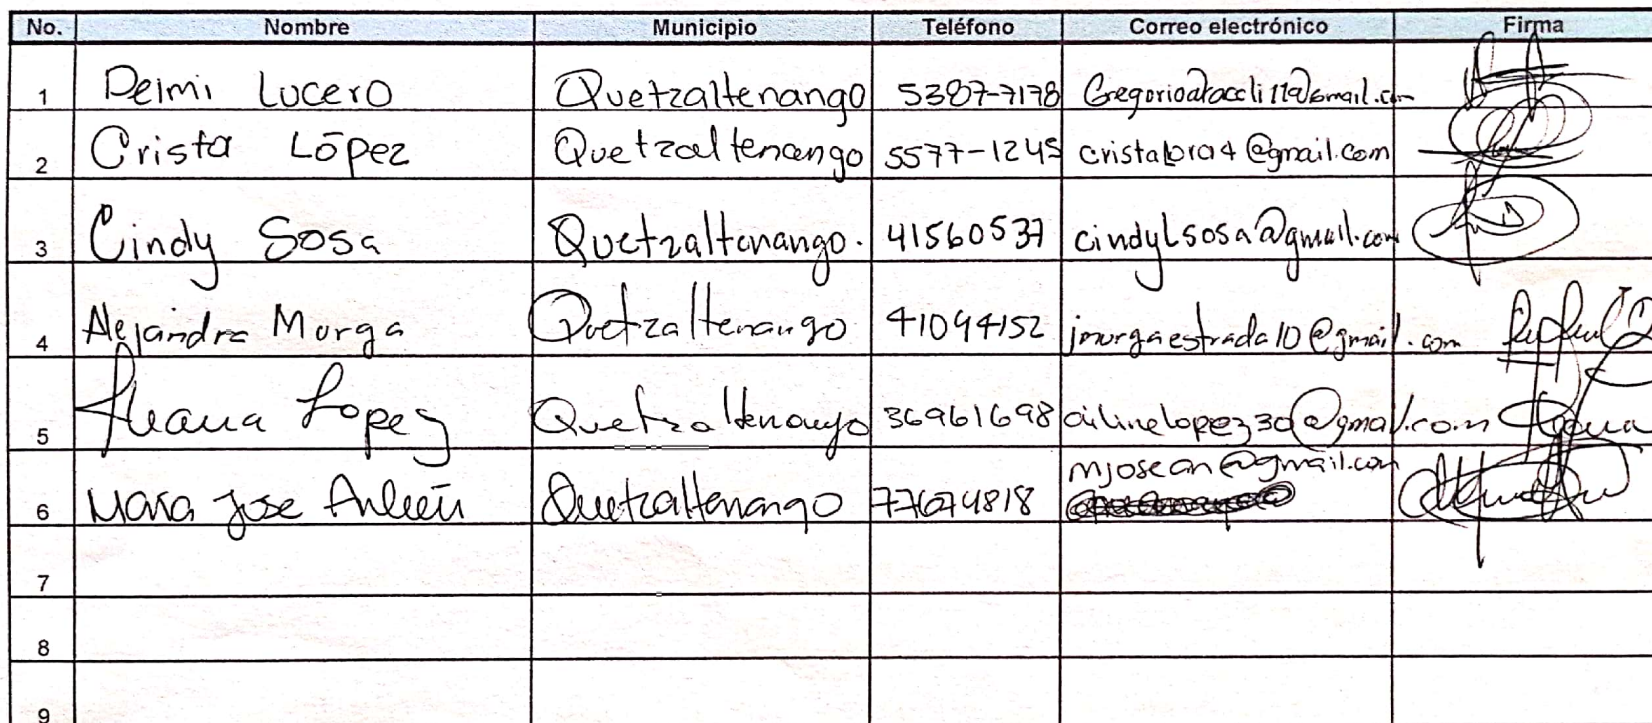 No. Nombre Municipio Teléfono Correo electrónico Firma
1 Delmi Lucero Quetzaltenango 5387-7178
2 Crista López Quetzaltenango 5577-1245 @gmail.com
3 Cindy Sosa Quetzaltenango. 41560537 cindylsosa@gmail.com
4 Alejandra Murga Quetzaltenango 41094152 jmurgaestrada10@gmail.com
5 Ileana Lopez Quetzaltenango 36961698 ailinelopez30@gmail.com
mjosean@gmail.com
6 Maria Jose Quetzaltenango 77674818
7
8
9